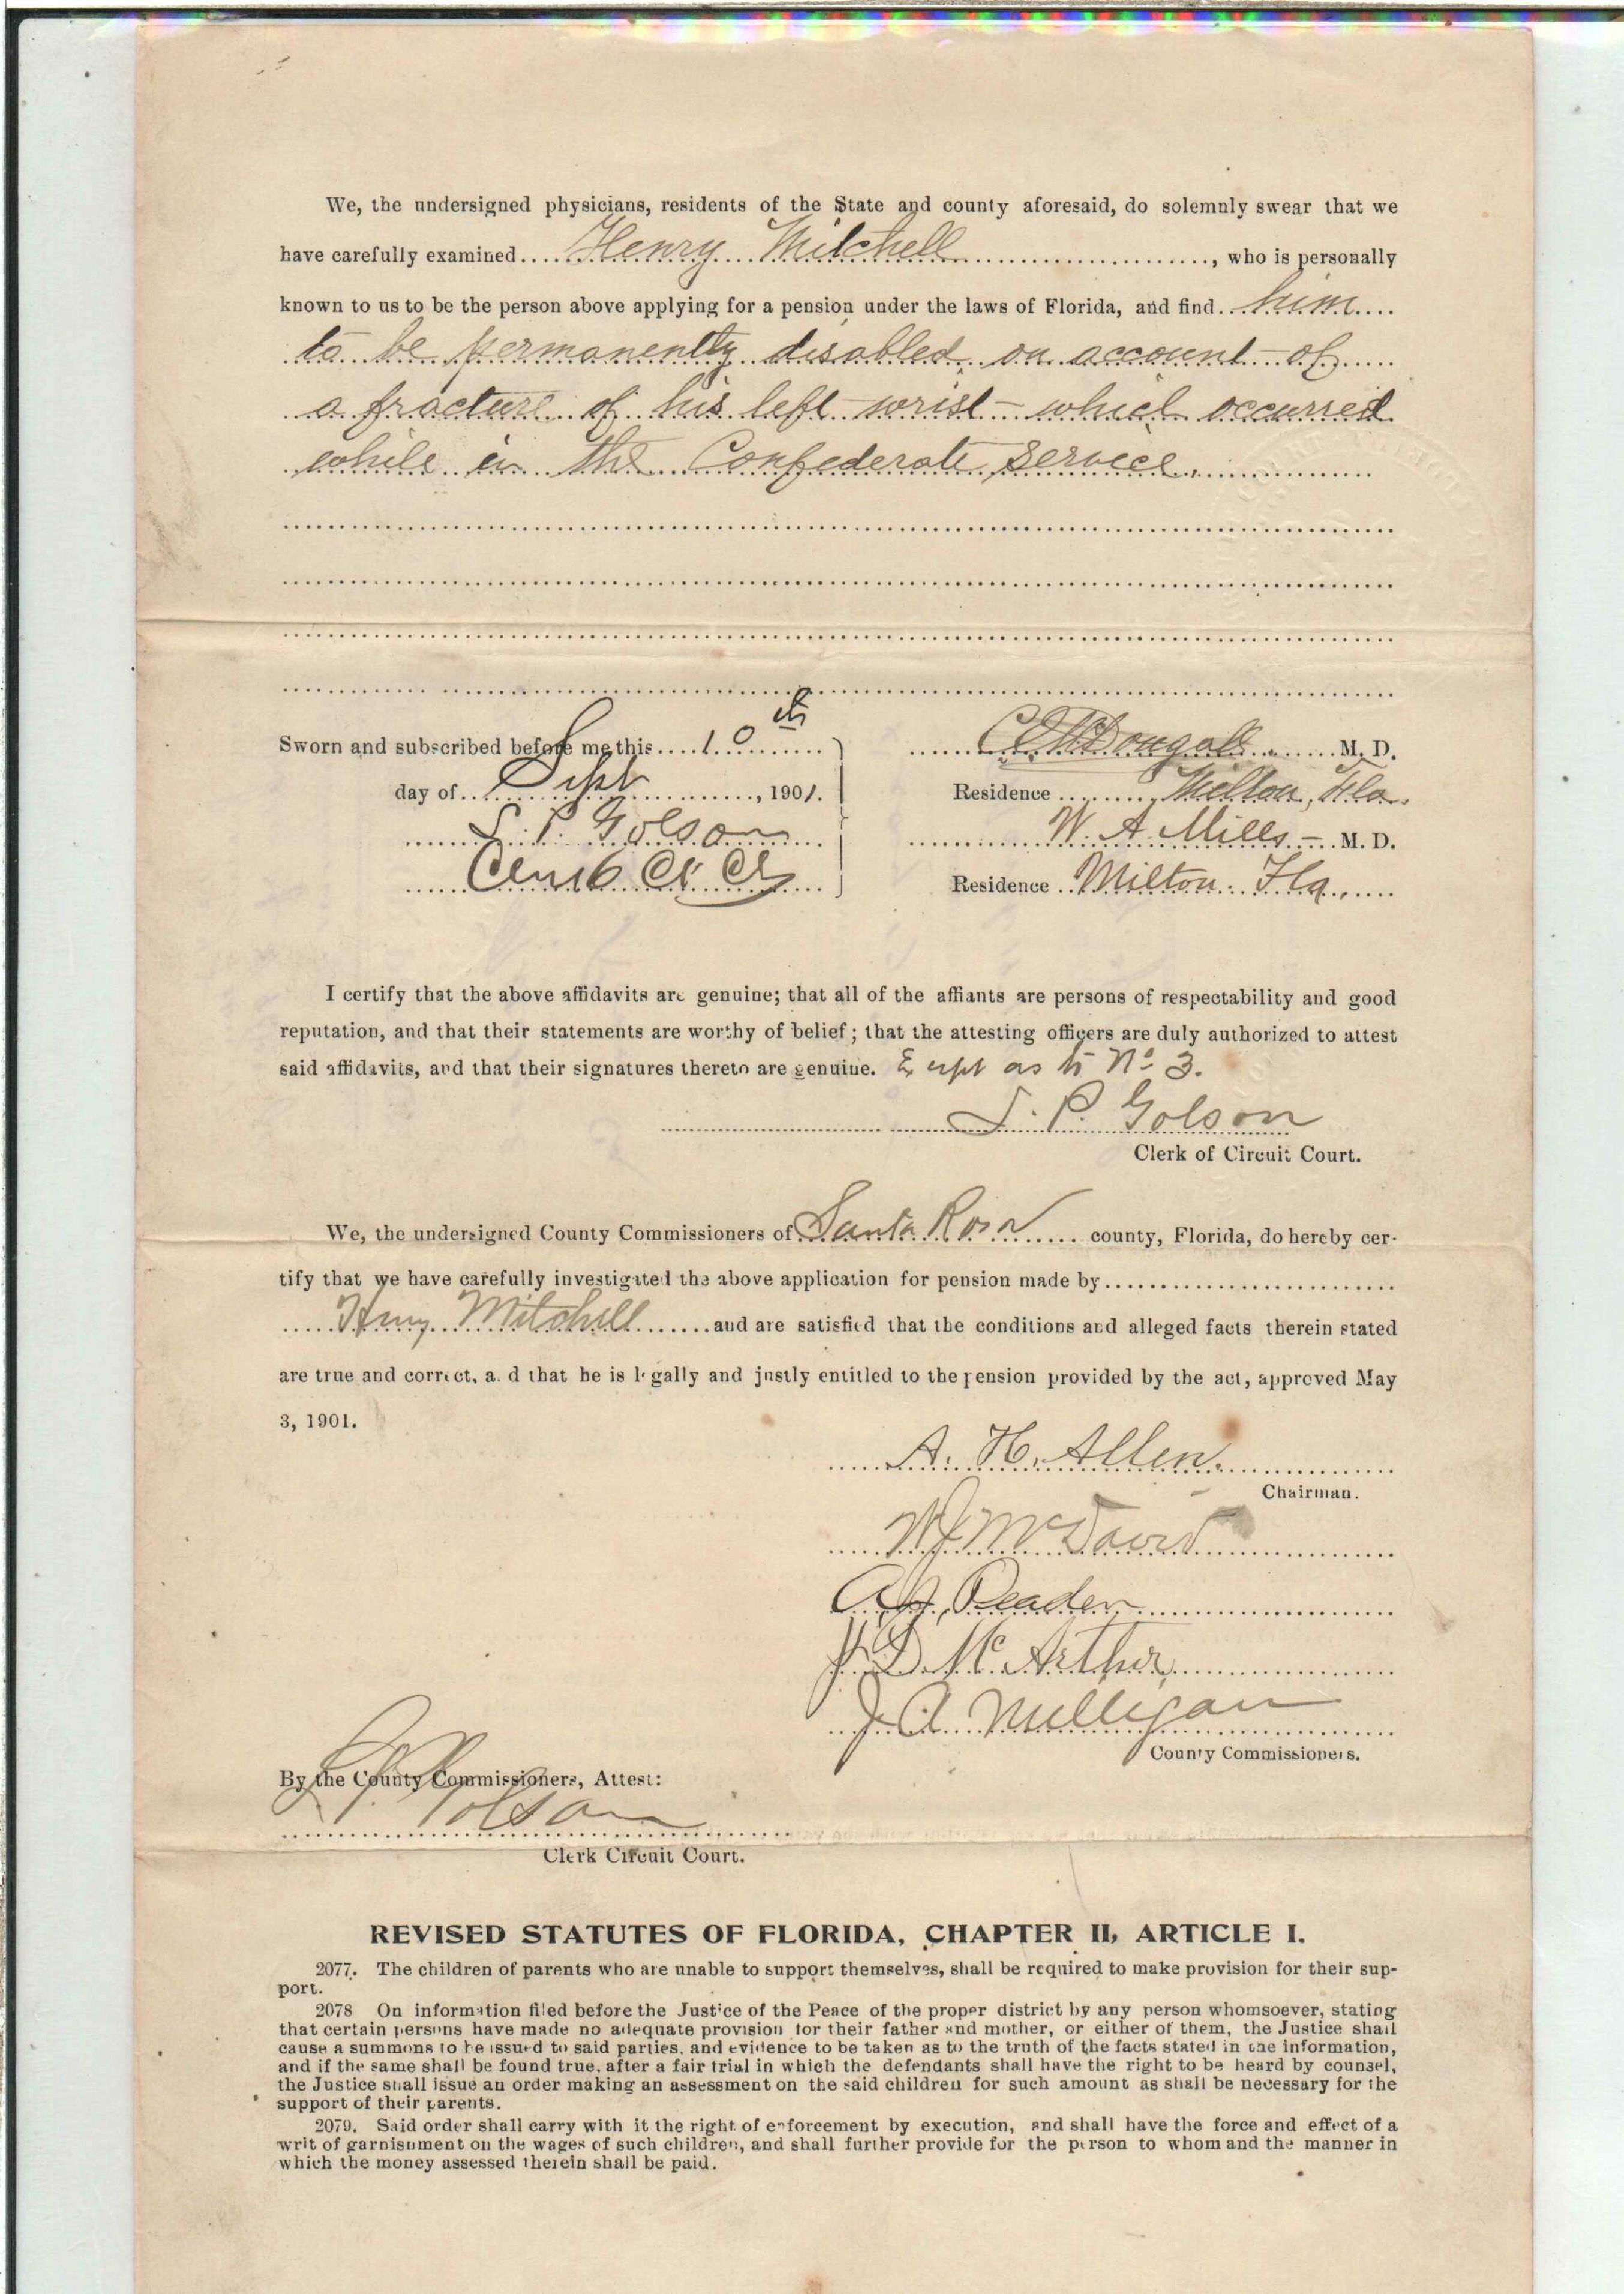 We, the undersigned physicians, residents of the State and county aforesaid, do solemnly swear that we
have carefully examined Henry Mitchell, who is personally
known to us to be the person above applying for a pension under the laws of Florida, and find him
to be permanently disabled on account of
a fracture of his left wrist which occurred
while in the Confederate service.
Sworn and subscribed before me this 10th
day of Sept, 1901.
McDougall M. D.
Residence Milton, Fla.
W. A. Mills M. D.
Residence Milton Fla.
Golson
I certify that the above affidavits are genuine; that all of the affiants are persons of respectability and good
reputation, and that their statements are worthy of belief; that the attesting officers are duly authorized to attest
said affidavits, and that their signatures thereto are genuine. Except as to No 3.
P. Golson
Clerk of Circuit Court.
We, the undersigned County Commissioners of Santa Rosa county, Florida, do hereby cer-
tify that we have carefully investigated the above application for pension made by
Henry Mitchell and are satisfied that the conditions and alleged facts therein stated
are true and correct, and that he is legally and justly entitled to the pension provided by the act, approved May
3, 1901.
A. H. Allen
Chairman.
McDavid
Peaden
J. D. McArthur
J A Milligan
County Commissioners.
By the County Commissioners, Attest:
Golson
Clerk Circuit Court.
REVISED STATUTES OF FLORIDA, CHAPTER II, ARTICLE I.
2077. The children of parents who are unable to support themselves, shall be required to make provision for their sup-
port.
2078 On information filed before the Justice of the Peace of the proper district by any person whomsoever, stating
that certain persons have made no adequate provision for their father and mother, or either of them, the Justice shall
cause a summons to be issued to said parties, and evidence to be taken as to the truth of the facts stated in the information,
and if the same shall be found true, after a fair trial in which the defendants shall have the right to be heard by counsel,
the Justice shall issue an order making an assessment on the said children for such amount as shall be necessary for the
support of their parents.
2079. Said order shall carry with it the right of enforcement by execution, and shall have the force and effect of a
writ of garnishment on the wages of such children, and shall further provide for the person to whom and the manner in
which the money assessed therein shall be paid.